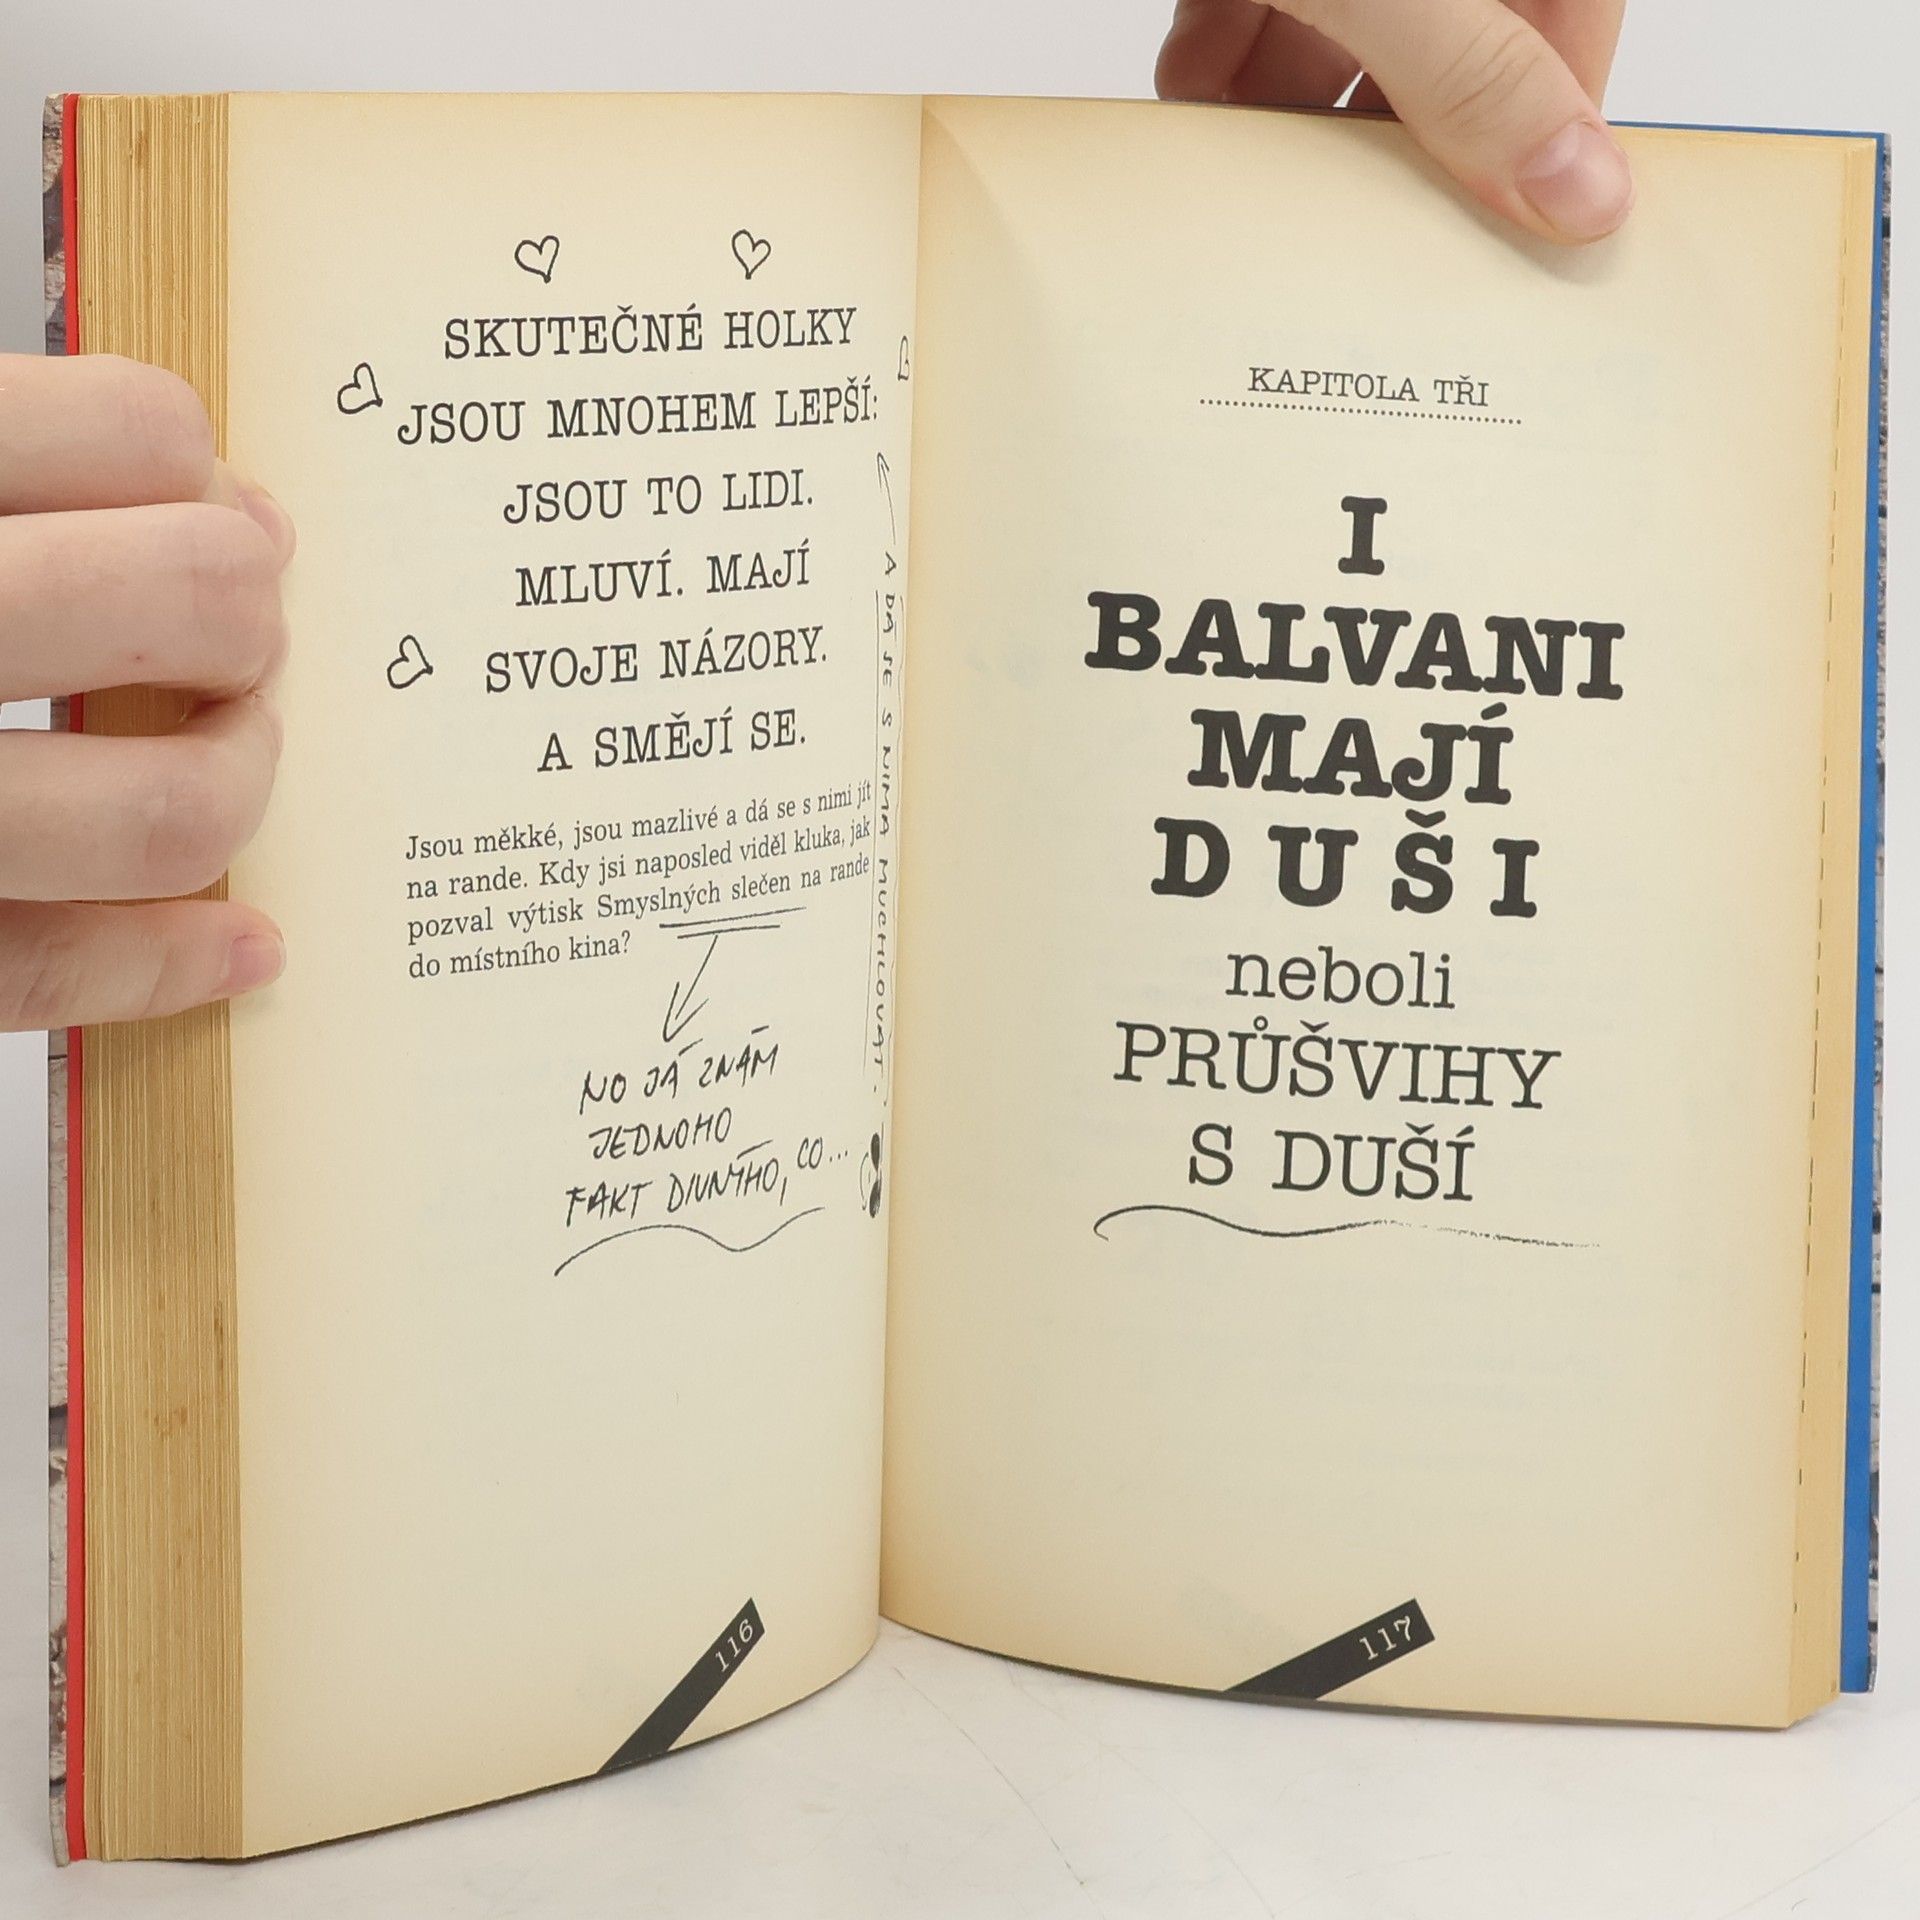 SKUTEČNÉ HOLKY
JSOU MNOHEM LEPŠÍ:
JSOU TO LIDI.
MLUVÍ. MAJÍ
SVOJE NÁZORY.
A SMĚJÍ SE.
Jsou měkké, jsou mazlivé a dá se s nimi jít
na rande. Kdy jsi naposled viděl kluka, jak
pozval výtisk Smyslných slečen na rande
do místního kina?
NO JÁ ZNÁM
JEDNOHO
FAKT DIVNÝHO, CO...
A DÁ JE S NIMA MUCHLOVAT.
116
KAPITOLA TŘI
I
BALVANI
MAJÍ
DUŠI
neboli
PRŮŠVIHY
S DUŠÍ
117